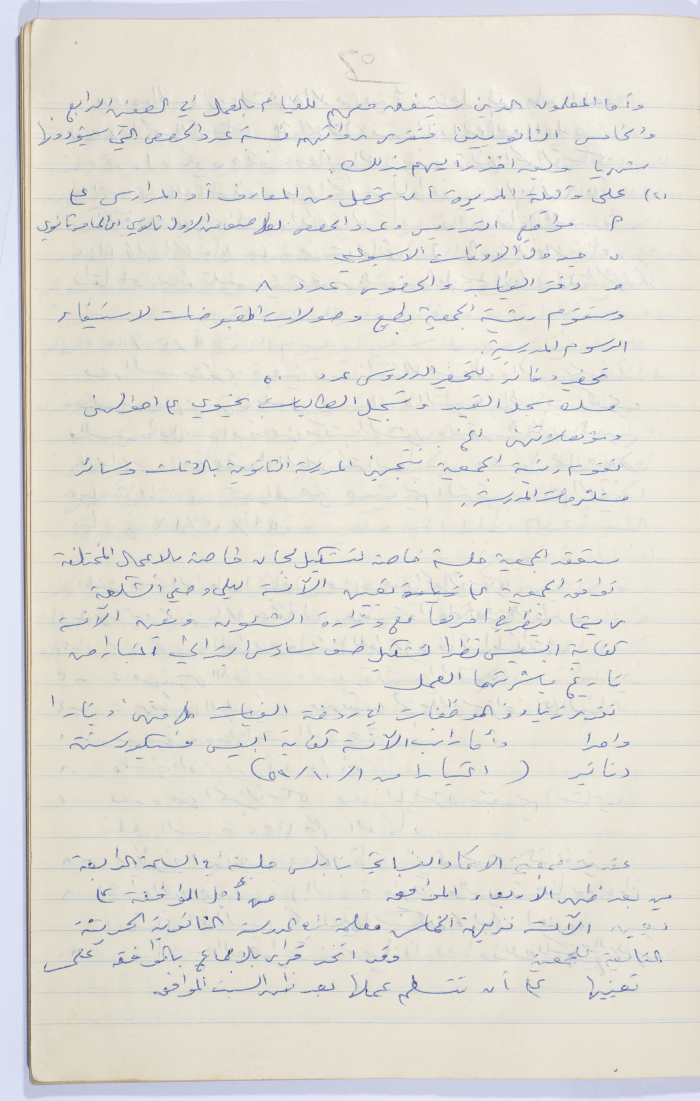 ٥٦
وأما المعلمون الذين ستيفق معهم للقيام بالعمل في الصفين الرابع
والخامس الثانويين فتقرر رواتبهم نسبة عدد الحصص التي سيؤدونها
شهريا وليه أخذ رأيهم بذلك.
(٢) على وكيلة المديرة أن تحصل من المعارف أو المدارس على
٢ مواضع التدريس وعدد الحصص لكل صف من الأول ثانوي الى الخامس ثانوي
ب جدول الأوقات الاسبوعي
ج دفتر الغياب والحضور عدد ٨
وستقوم رئيسة الجمعية بطبع وصولات المقبوضات لاستيفاء
الرسوم المدرسية.
تحضير دفاتر لتحضير الدروس عدد ٥٠
مسك سجل القيد وتسجل الطالبات يحتوي على احوالهن
ومؤهلاتهن الخ
تقوم رئيسة الجمعية بتجهيز المدرسة الثانوية بالاثاث وسائر
مستلزمات المدرسة.
ستعقد الجمعية جلسة خاصة لتشكيل لجان خاصة بالاعمال المختلفة
توافق الجمعية على تعيين الآنسة ليلى وصفي الشكعة
ريثما ينظر في امرها مع وزارة الشئون وتعين الآنسة
كفاية البيس نظرا لتشكيل صف سادس ابتدائي اعتبارا من
تاريخ مباشرتها العمل
تقرر زيادة الموظفات في روضة الفتيات كل منهن دينارا
واحدا وأما راتب الآنسة كفاية البيس فسيكون ستة
دنانير (اعتبارا من ١/١٠/٥٩)
عقدت جمعية الاتحاد النسائي بنابلس جلسة في الساعة الرابعة
من بعد ظهر الاربعاء الموافق من أجل الموافقة على
تعيين الآنسة نزيهة الخماش معلمة في المدرسة الثانوية الحديثة
التابعة للجمعية وقد اتخذ قرار بالاجماع بالموافقة على
تعيينها على أن تتسلم عملها بعد ظهر السبت الموافق.